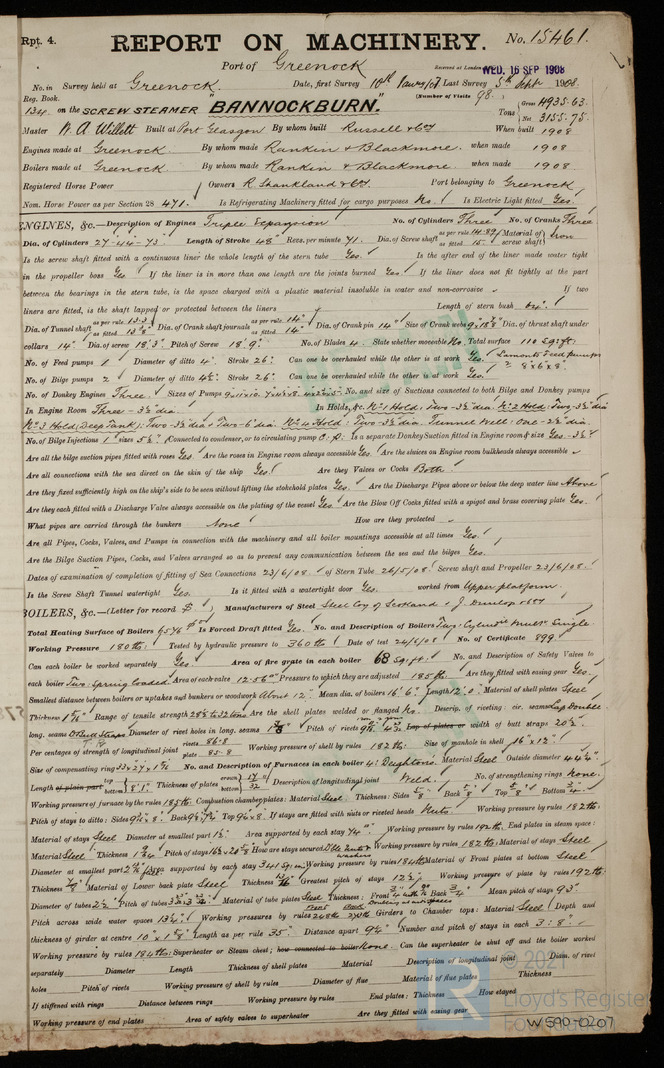 Rpt. 4.
REPORT ON MACHINERY. No. 15461.
Port of Greenock Received at London WED. 16 SEP 1908
No. in Survey held at Greenock. Date, first Survey Last Survey 5th Sept 1908.
Reg. Book. (Number of Visits 98.
134 on the SCREW STEAMER "BANNOCKBURN." Tons { Gross 4935.63. Net 3155.75.
Master W. A. Willett Built at Port Glasgow By whom built Russell & Coy When built 1908
Engines made at Greenock By whom made Rankin & Blackmore. when made 1908
Boilers made at Greenock. By whom made Rankin & Blackmore when made 1908
Registered Horse Power Owners R. Shankland & Coy. Port belonging to Greenock
Nom. Horse Power as per Section 28 471. Is Refrigerating Machinery fitted for cargo purposes No. Is Electric Light fitted Yes.
ENGINES, &c.—Description of Engines Triple Expansion No. of Cylinders Three No. of Cranks Three
Dia. of Cylinders 27"-44"-73" Length of Stroke 48" Revs. per minute 71. Dia. of Screw shaft as per rule 14.89 as fitted 15. Material of screw shaft } Iron
Is the screw shaft fitted with a continuous liner the whole length of the stern tube Yes. Is the after end of the liner made water tight
in the propeller boss Yes If the liner is in more than one length are the joints burned Yes If the liner does not fit tightly at the part
between the bearings in the stern tube, is the space charged with a plastic material insoluble in water and non-corrosive If two
liners are fitted, is the shaft lapped or protected between the liners Length of stern bush
Dia. of Tunnel shaft as per rule 13.3 as fitted Dia. of Crank shaft journals as per rule 14" as fitted 14" Dia. of Crank pin 14" Size of Crank webs Dia. of thrust shaft under
collars 14" Dia. of screw 18'.3" Pitch of Screw 18'.9" No. of Blades 4. State whether moveable No. Total surface 110 Sq: ft:
No. of Feed pumps 1 Diameter of ditto 4" Stroke 26" Can one be overhauled while the other is at work Yes. Lamont's Feed pumps
No. of Bilge pumps 2 Diameter of ditto 4½" Stroke 26" Can one be overhauled while the other is at work Yes. 2 8x6x8"
No. of Donkey Engines Three. Sizes of Pumps No. and size of Suctions connected to both Bilge and Donkey pumps
In Engine Room Three - 3½" dia. In Holds, &c. No 1 Hold: Two - 3½" dia No 2 Hold: Two - 3½" dia
No 3 Hold (Deep Tank): Two - 3½" dia & Two - 6" dia. No 4 Hold: Two - 3½" dia. Tunnel Well: One - 2½" dia.
No. of Bilge Injections 1 sizes 5½" Connected to condenser, or to circulating pump C.P. Is a separate Donkey Suction fitted in Engine room & size Yes. 3½"
Are all the bilge suction pipes fitted with roses Yes Are the roses in Engine room always accessible Yes. Are the sluices on Engine room bulkheads always accessible
Are all connections with the sea direct on the skin of the ship Yes. Are they Valves or Cocks Both.
Are they fixed sufficiently high on the ship's side to be seen without lifting the stokehold plates Yes. Are the Discharge Pipes above or below the deep water line Above
Are they each fitted with a Discharge Valve always accessible on the plating of the vessel Yes. Are the Blow Off Cocks fitted with a spigot and brass covering plate Yes.
What pipes are carried through the bunkers None How are they protected
Are all Pipes, Cocks, Valves, and Pumps in connection with the machinery and all boiler mountings accessible at all times Yes.
Are the Bilge Suction Pipes, Cocks, and Valves arranged so as to prevent any communication between the sea and the bilges Yes.
Dates of examination of completion of fitting of Sea Connections 23/6/08. of Stern Tube 26/5/08. Screw shaft and Propeller 23/6/08.
Is the Screw Shaft Tunnel watertight Yes. Is it fitted with a watertight door Yes. worked from Upper platform.
BOILERS, &c.—(Letter for record S) Manufacturers of Steel Steel Coy of Scotland & J. Dunlop & Coy
Total Heating Surface of Boilers 6576 Is Forced Draft fitted Yes. No. and Description of Boilers Two: Single
Working Pressure 180 lbs: Tested by hydraulic pressure to 360 lbs Date of test 24/6/08 No. of Certificate 899.
Can each boiler be worked separately Yes. Area of fire grate in each boiler 68 Sq: ft: No. and Description of Safety Valves to
each boiler Two: Spring loaded. Area of each valve 12.56" Pressure to which they are adjusted 185 lbs: Are they fitted with easing gear Yes.
Smallest distance between boilers or uptakes and bunkers or woodwork About 12". Mean dia. of boilers 16'.6" Length 12'.0" Material of shell plates Steel
Thickness Range of tensile strength 28½ to 32 tons Are the shell plates welded or flanged No. Descrip. of riveting: cir. seams Lap Double
long. seams Diameter of rivet holes in long. seams Pitch of rivets Lap of plates or width of butt straps 20½"
Per centages of strength of longitudinal joint rivets 86.8 plate 85.8 Working pressure of shell by rules 182 lbs: Size of manhole in shell 16" x 12".
Size of compensating ring No. and Description of Furnaces in each boiler 4: Deightons. Material Steel Outside diameter
Length of plain part top bottom Thickness of plates crown bottom Description of longitudinal joint Weld. No. of strengthening rings None.
Working pressure of furnace by the rules 185 lbs: Combustion chamber plates: Material Steel Thickness: Sides 5/8 Back 5/8 Top 5/8 Bottom 3/4"
Pitch of stays to ditto: Sides Back Top If stays are fitted with nuts or riveted heads Nuts. Working pressure by rules 182 lbs:
Material of stays Steel Diameter at smallest part Area supported by each stay Working pressure by rules End plates in steam space:
Material Steel Thickness Pitch of stays How are stays secured Dble Nuts & washers Working pressure by rules 182 lbs: Material of stays Steel
Diameter at smallest part Area supported by each stay Working pressure by rules 184 lbs: Material of Front plates at bottom Steel
Thickness Material of Lower back plate Steel Thickness Greatest pitch of stays Working pressure of plate by rules 192 lbs:
Diameter of tubes 2½" Pitch of tubes Material of tube plates Steel Thickness: Front Back 3/4 Mean pitch of stays
Pitch across wide water spaces Working pressures by rules Girders to Chamber tops: Material Steel Depth and
thickness of girder at centre Length as per rule 35" Distance apart Number and pitch of stays in each 3: 8".
Working pressure by rules 184 lbs: Superheater or Steam chest; how connected to boiler None. Can the superheater be shut off and the boiler worked
separately Diameter Length Thickness of shell plates Material Description of longitudinal joint Diam. of rivet
holes Pitch of rivets Working pressure of shell by rules Diameter of flue Material of flue plates Thickness
If stiffened with rings Distance between rings Working pressure by rules End plates: Thickness How stayed
Working pressure of end plates Area of safety valves to superheater Are they fitted with easing gear
© 2021
Lloyd's Register
Foundation
W590-0207